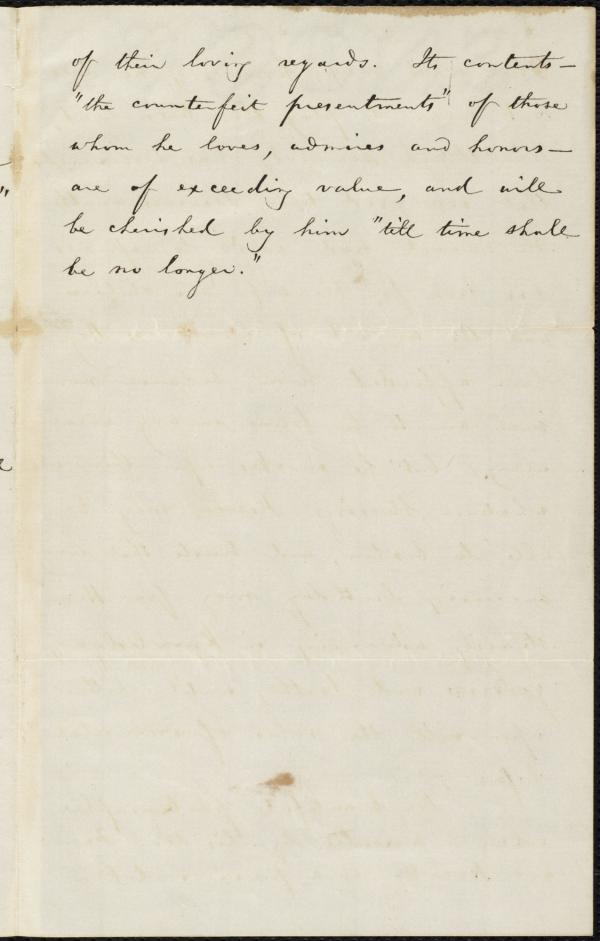 of their loving regards. Its contents—
"the counterfeit presentments" of those
whom he loves, admires and honors—
are of exceeding value, and will
be cherished by him "till time shall
be no longer."